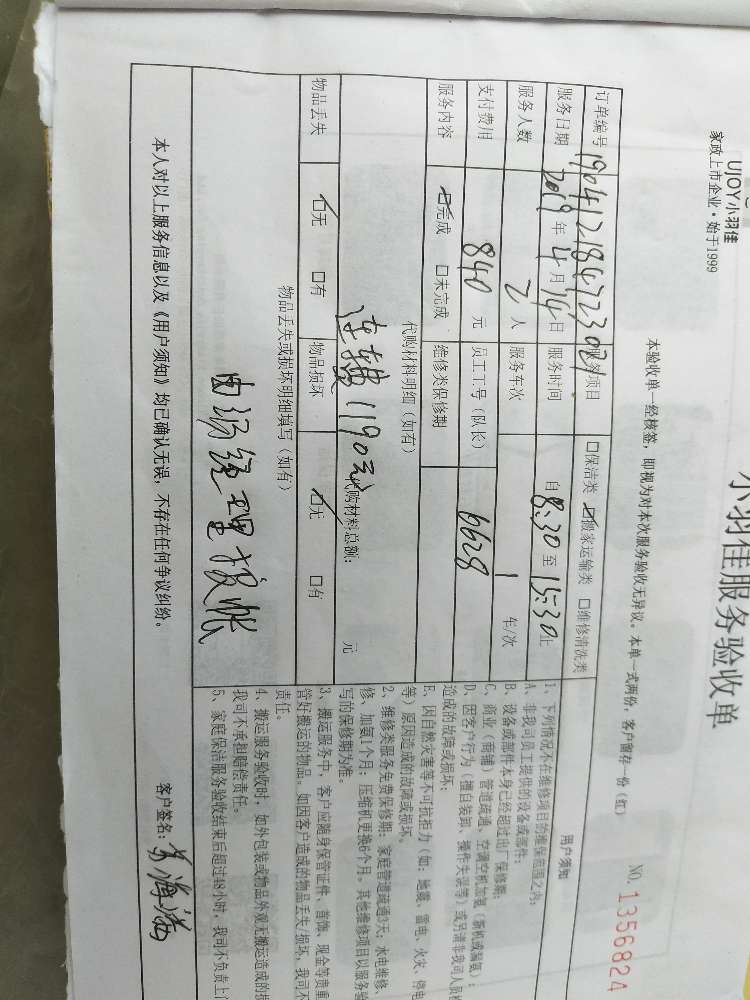 UJOY小羽佳
家政上市企业·始于1999
小羽佳服务验收单
本验收单一经核签，即视为对本次服务验收无异议。本单一式两份，客户留存一份（红）
NO. 1356824
订单编号 19041218472302 服务项目 □保洁类 ☑搬家运输类 □维修清洗类
服务日期 2019年4月14日 服务时间 自8:30至15:30止
服务人数 2人 服务车次 1 车/次
支付费用 840元 员工工号（队长） 6628
服务内容 ☑完成 □未完成 维修类保修期
代购材料明细（如有）
1190元 代购材料总额： 元
物品丢失 ☑无 □有 物品损坏 ☑无 □有
物品丢失或损坏明细填写（如有）
由汤经理报帐
用户须知
1、下列情况不在维修项目的维保范围之内：
A、非我司员工提供的设备或部件；
B、设备或部件本身已经超过出厂保修期；
C、商业（商铺）管道疏通、空调空机加氨（新机或漏氨）；
D、因客户行为（擅自装卸、操作失误等）或另请非我司人员
造成的故障或损坏；
E、因自然灾害等不可抗拒力（如：地震、雷电、火灾、停电
等）原因造成的故障或损坏。
2、维修类服务免费保修期：家庭管道疏通3天；水电维修、
修、加氨1个月；压缩机更换6个月。其他维修项目以服务验
写的保修期为准。
3、搬运服务中，客户应随身保管证件、首饰、现金等贵重
管好搬运的物品。如因客户造成的物品丢失/损坏，我司不
责任。
4、搬运服务验收时，如外包装或物品外观无搬运造成的损
我司不承担赔偿责任。
5、家庭保洁服务验收结束后超过48小时，我司不负责上门
本人对以上服务信息以及《用户须知》均已确认无误，不存在任何争议纠纷。
客户签名：